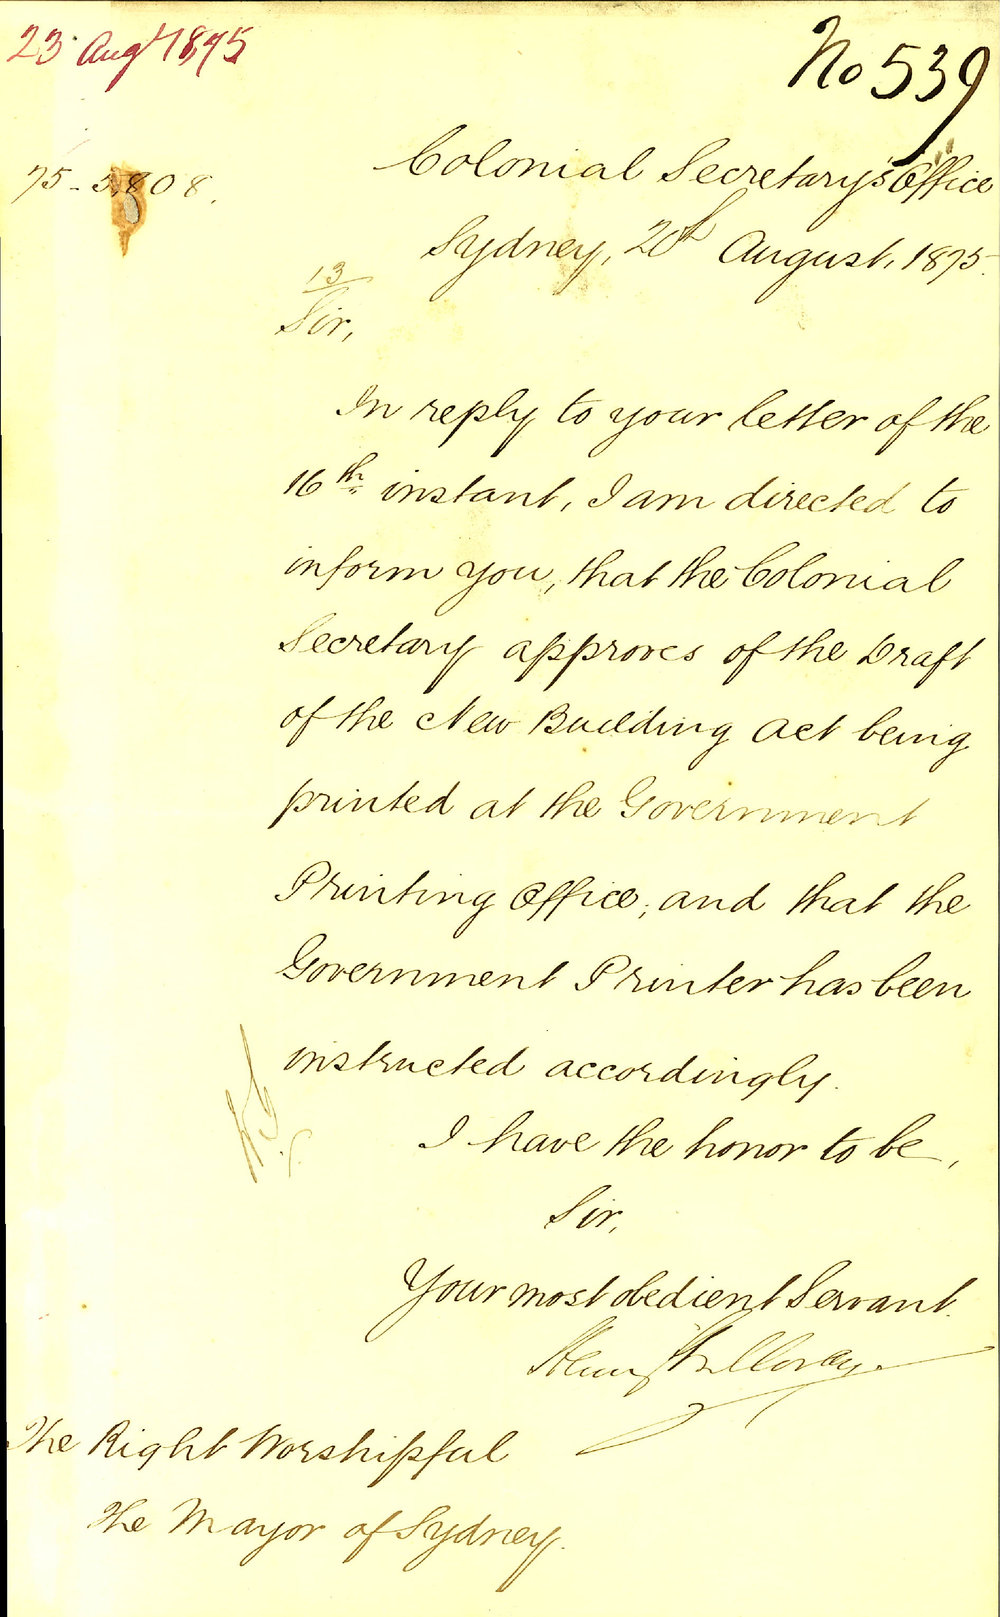 23 Augt 1875
No 539
75-5,808.
Colonial Secretary's Office
Sydney, 20th August, 1875.
13
Sir,
In reply to your letter of the
16th instant, I am directed to
inform you, that the Colonial
Secretary approves of the Draft
of the New Building Act being
printed at the Government
Printing Office, and that the
Government Printer has been
instructed accordingly.
I have the honor to be,
Sir,
Your most obedient Servant.
Henry Halloran
The Right Worshipful
The Mayor of Sydney.